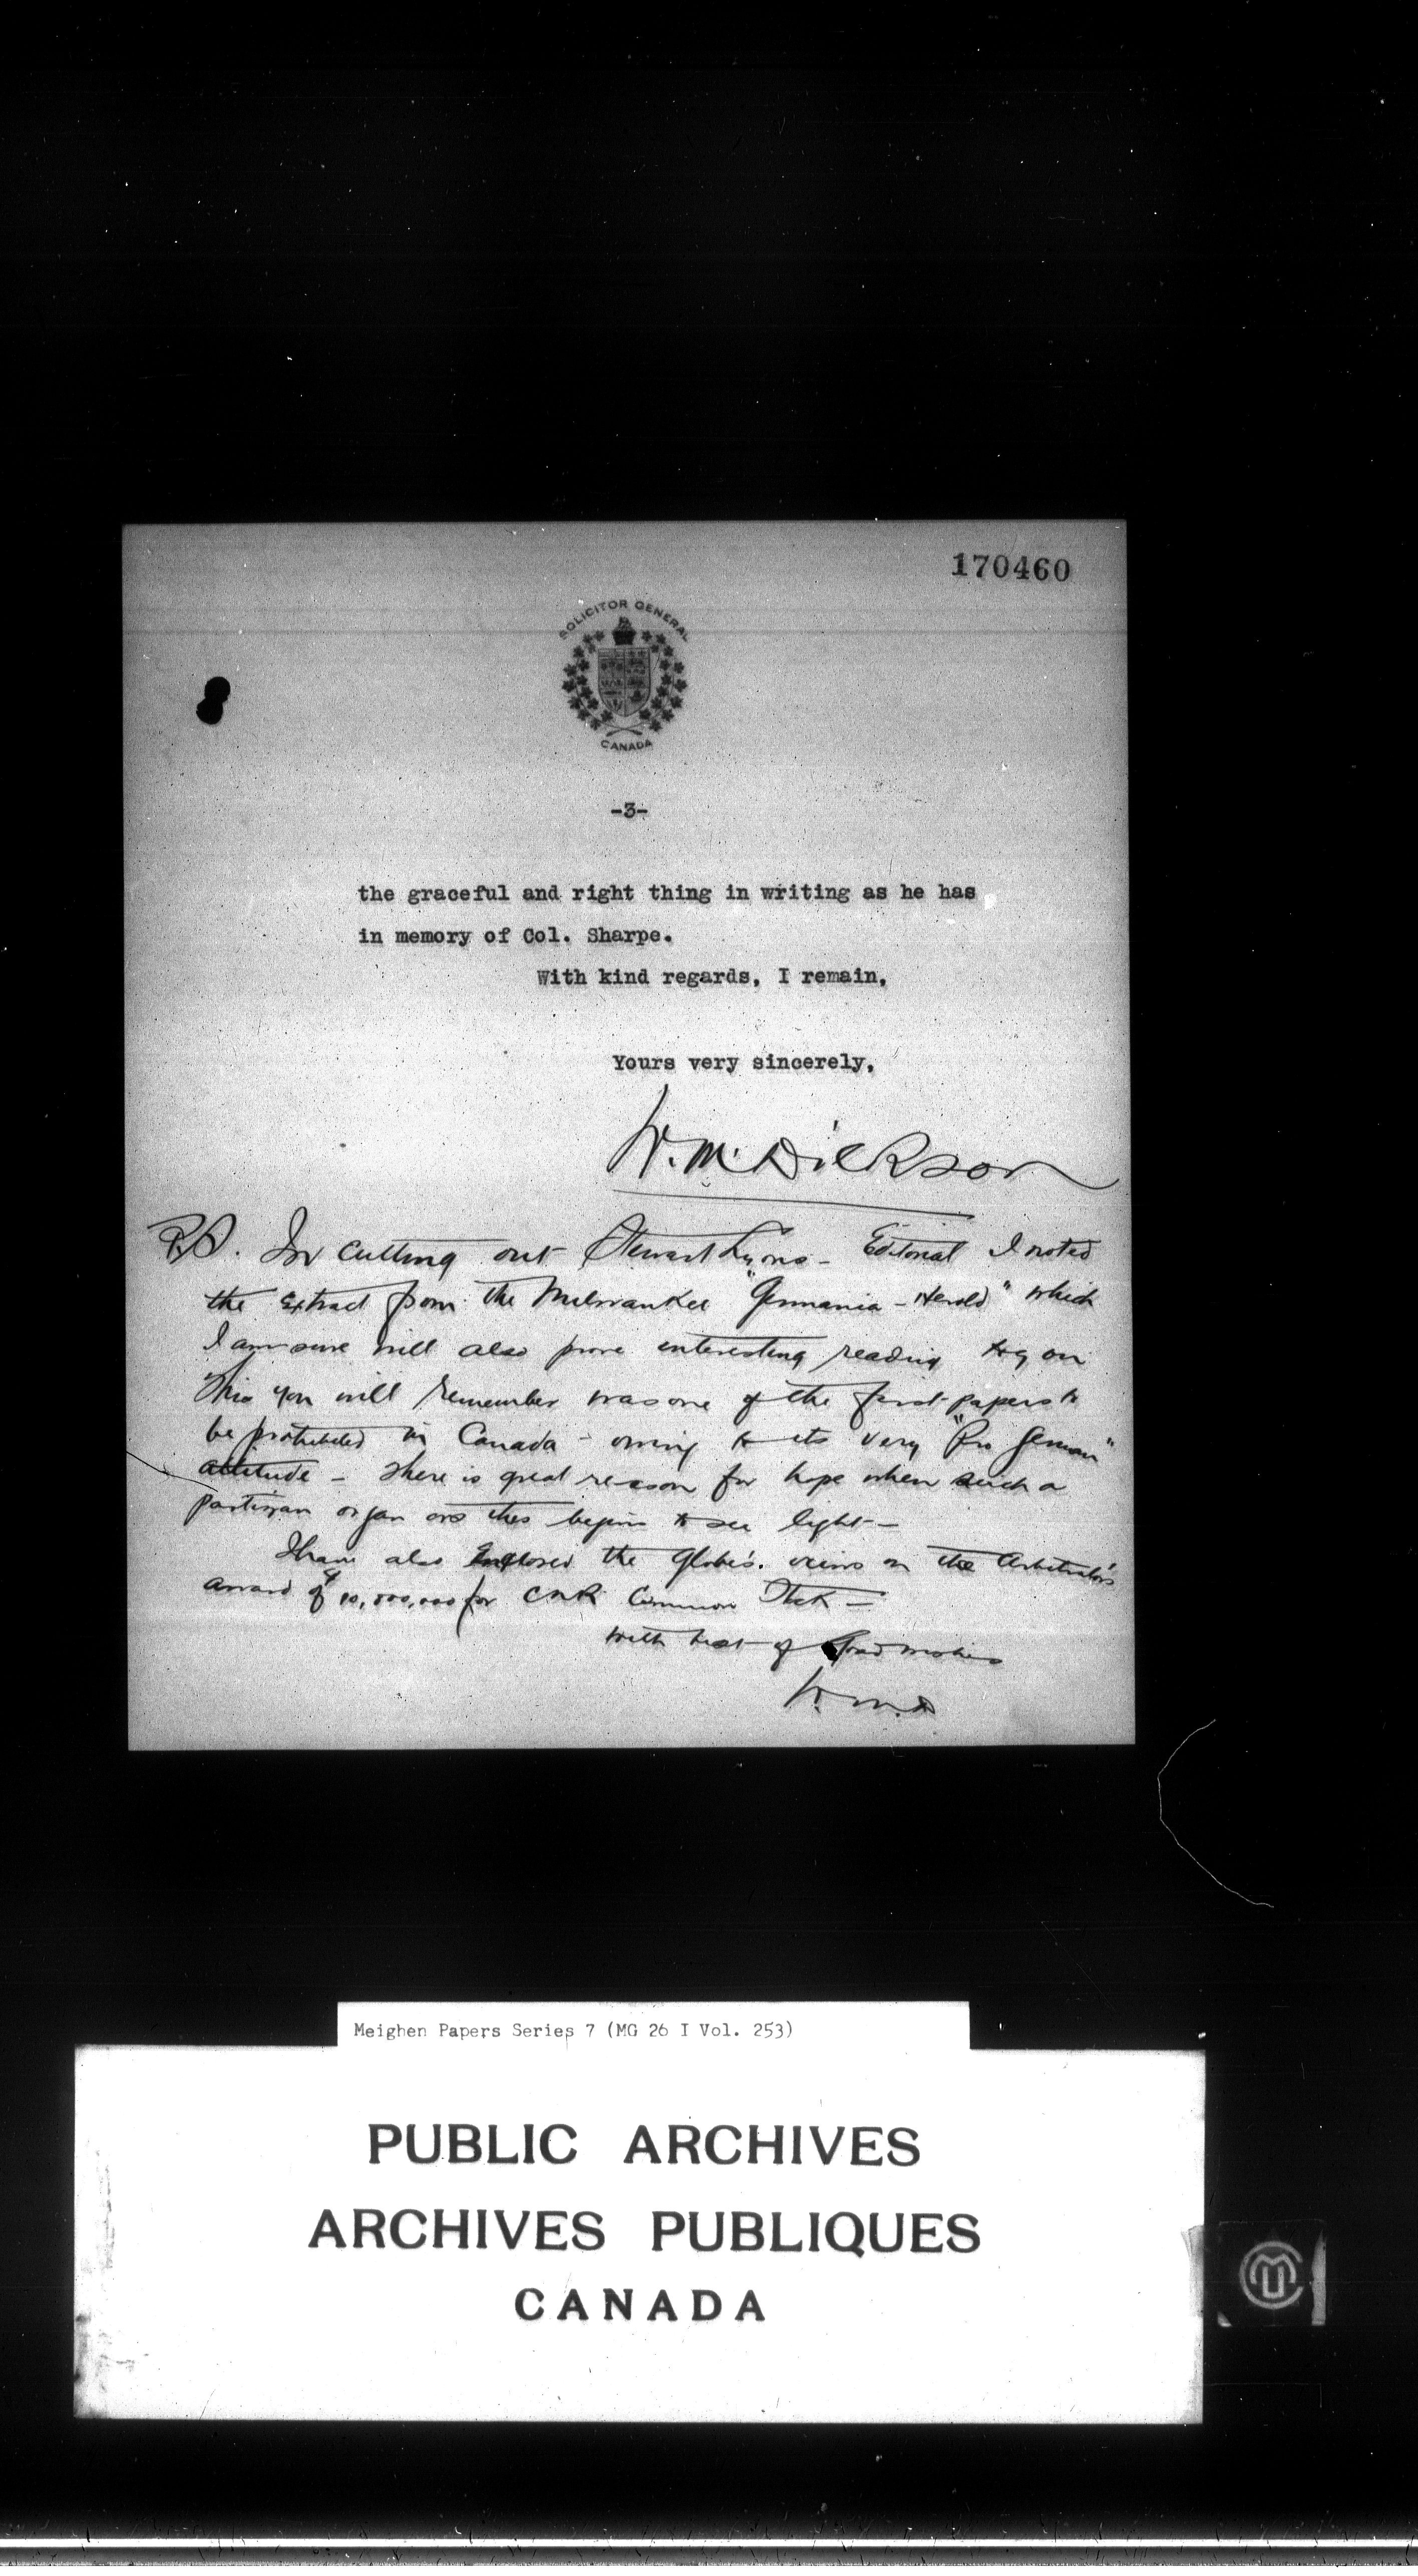 170460
SOLICITOR GENERAL
CANADA
-3-
the graceful and right thing in writing as he has
in memory of Col. Sharpe.
With kind regards, I remain,
Yours very sincerely,
W.M. Dickson
P.S. In cutting out Stewart Lyons - Editorial I noted
the extract from the Milwaukee "Germania-Herold" which
I am sure will also prove interesting reading to you
This you will remember was one of the first papers to
be prohibited in Canada - owing to its very "Pro German"
attitude - There is great reason for hope when such a
partizan organ as this begins to see light -
I have also Enclosed the Globe's views on the Arbitrator's
award of $10,000,000 for CNR Common Stock -
with best of Good wishes
W.M.D
Meighen Papers Series 7 (MG 26 I Vol. 253)
PUBLIC ARCHIVES
ARCHIVES PUBLIQUES
CANADA